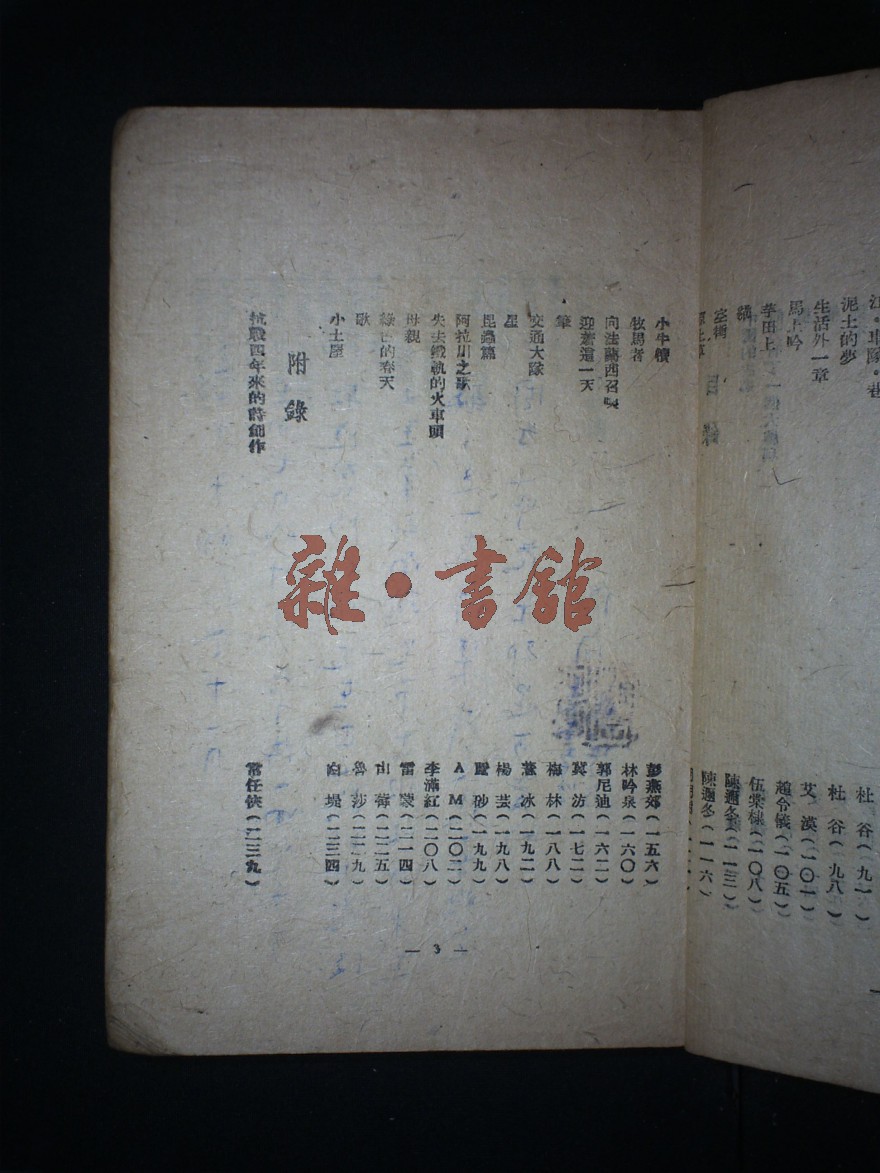 杜 谷（ 九一）
泥土的夢 杜 谷（ 九八）
生活外一章 艾 漠（一〇一）
馬上吟 趙令儀（一〇五）
芋田上 伍棠棣（一〇八）
縴 陳邇冬（一一三）
陳邇冬（一一六）
小牛犢 彭燕郊（一五六）
牧馬者 林吟泉（一六〇）
向法蘭西召喚 郭尼迪（一六二）
迎着這一天 冀 汸（一七二）
筆 梅 林（一八八）
交通大隊 冰（一九二）
星 楊 芸（一九八）
昆蟲篇 砂（一九九）
阿拉川之歌 A M（二〇二）
失去鐵軌的火車頭 李滿紅（二〇八）
母親 雷 蒙（二一四）
綠色的春天 山 莓（二二五）
歌 魯 莎（二二九）
小土屋 白 堤（二三四）
附錄
抗戰四年來的詩創作 常任俠（二三九）
— 3 —
雜•書館